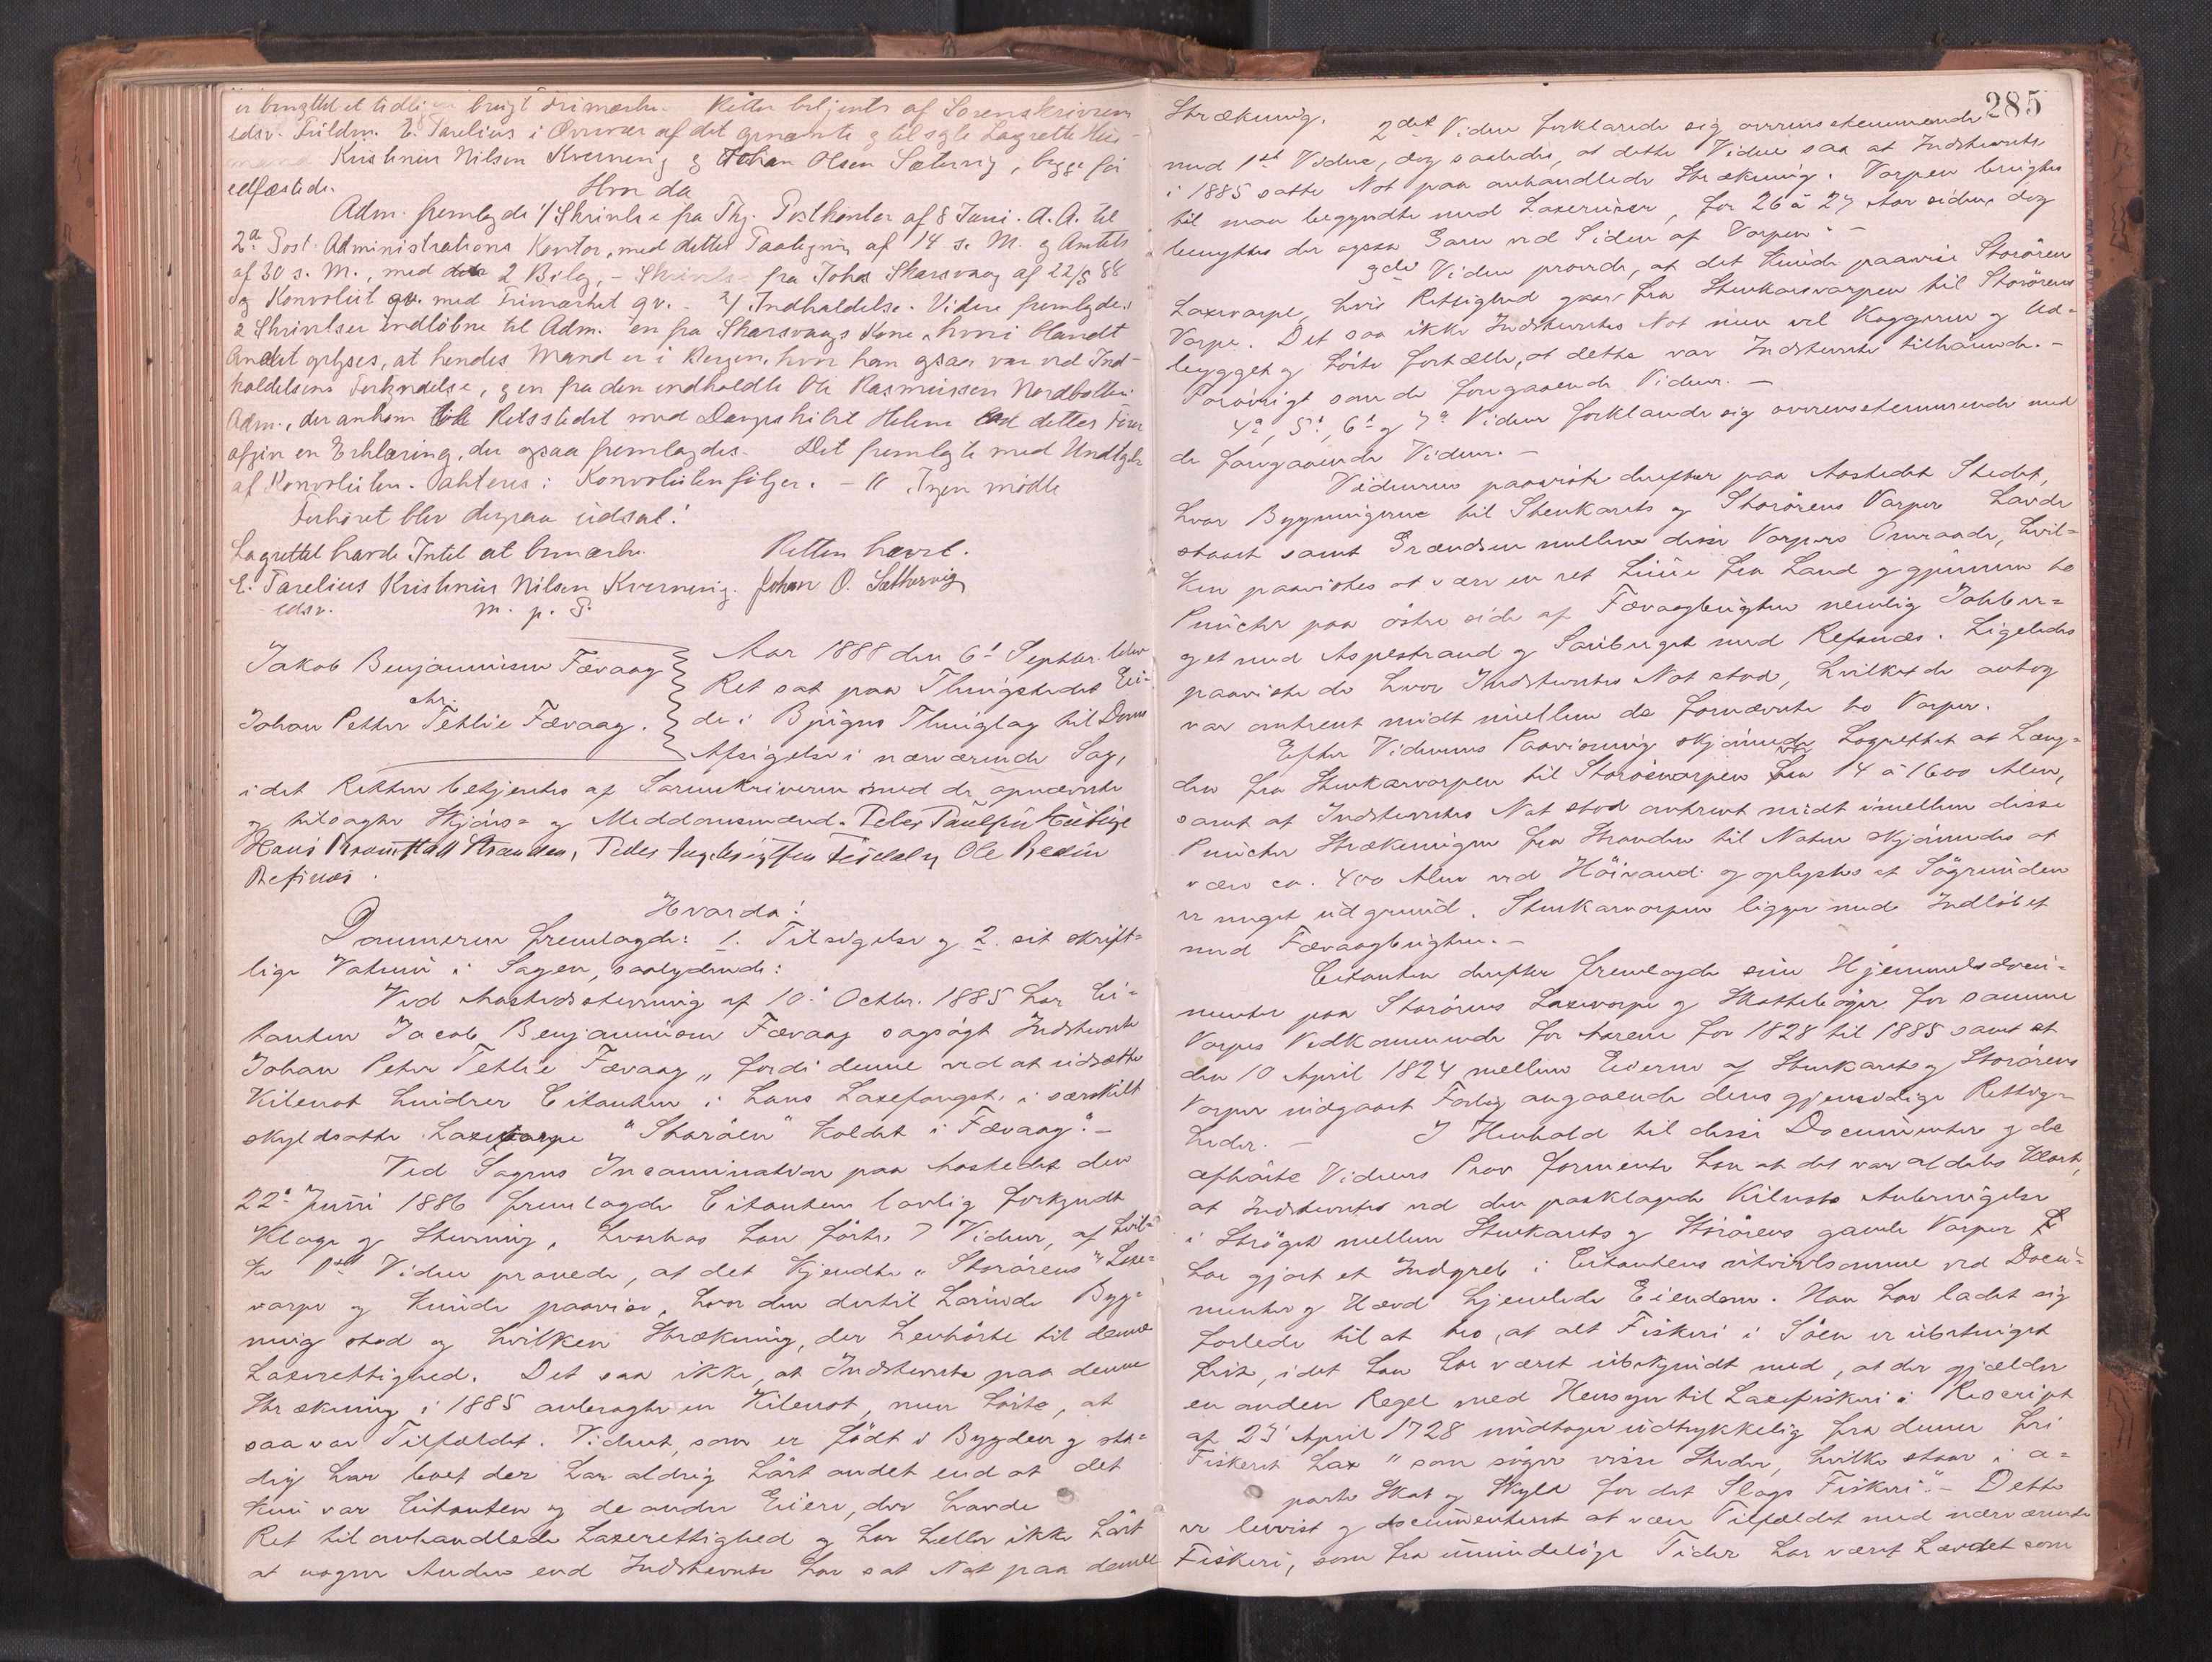 er benyttet et tidligere brugt Frimærke. Retten betjentes af Sorenskriveren
edsv. Fuldm. E. Parelius i Overvær af det opnævnte og tilsagte Lagrette Hus-
mænd Kristinius Nilsen Kvernvig og Johan Olsen Sætervig, begge før
edfæstede.
Hvor da
Adm. fremlagde 1/ Skrivelse fra Thj. Postkontor af 8 Juni d. A. til
2a Post-Administrations Kontor, med dettes Paategning af 14 s. M. og Amtets
af 30 s. M., med 2 Bilag, - Skrivelse fra Johs Skarsvaag af 22/5 88
og Konvolut qv. med Frimærket qv. - 2/. Indkaldelse. Videre fremlagdes
2 Skrivelser indløbne til Adm. en fra Skarsvaags Kone, hvori blandt
Andet oplyses, at hendes Mand er i Bergen, hvor han ogsaa var ved Ind-
kaldelsens Forkyndelse, og en fra den indkaldte Ole Rasmussen Nordbotten
Adm., der ankom til Retsstedet med Dampskibet
afgiv en Erklæring, der ogsaa fremlagdes. Det fremlagte med Undtagelse
af Konvoluten. akteres: Konvoluten følger. - Ingen mødte
Forhøret blev derpaa udsat!
Lagrettet havde Intet at bemærke. Retten hævet.
E. Parelius Kristinius Nilsen Kvernvig. Johan O. Sættervig
edsv. m. p. P.
Jakob Benjaminsen Fævaag
ctr.
Johan Petter Tetlie Fævaag.
Aar 1888 den 6t Septber. blev
Ret sat paa Thingstedet Ei-
de i Bjugns Thinglag til Doms
Afsigelse i nærværende Sag,
idet Retten betjentes af Sorenskriveren med de opnævnte
og tilsagte Skjøns- og Meddomsmænd. Peter Paulsen
Hans Stranden, Peder Ole Redin
Refsnæs.
Hvorda!
Dommeren fremlagde: 1. Tilsigelse og 2. sit skrift-
lige Votum i Sagen, saalydende:
Ved Aastedsstevning af 10de Octbr. 1885 har Ci-
tanten Jacob Benjaminsen Fævaag sagsøgt Indstevnte
Johan Peter Tetlie Fævaag „fordi denne ved at udsætte
Kilenot hindrer Citanten i hans Laxefangst i særskilt
skyldsatte Laxevarpe "Storøren" kaldet i Fævaag". -
Ved Sagens Incamination paa Aastedet den
22de Juni 1886 fremlagde Citanten lovlig forkyndt
Klage og Stevning, hvorhos han førte 7 Vidner, af hvil-
ke 1ste Vidne provede, at det kjendte „Storørens" Laxe-
varpe og kunde paavise, hvor den dertil hørende Byg-
ning stod og hvilken Strækning, der henhørte til denne
Laxerettighed. Det saa ikke, at Indstevnte paa denne
Strækning i 1885 anbragte en Kilenot, men hørte, at
saa var Tilfældet. Vidnet, som er født i Bygden og sta-
dig har boet der har aldrig hørt andet end at det
kun var Citanten og de andre Eiere, der havde
Ret til omhandlede Laxerettighed og har heller ikke hørt
at nogen Anden end Indstevnte har sat Not paa denne
285
Strækning. 2det Vidne forklarede sig overensstemmende
med 1ste Vidne, dog saaledes, at dette Vidne saa at Indstevnte
i 1885 satte Not paa omhandlede Strækning. Varpen brugtes
til man begyndte med Laxeruser, for 26 à 27 Aar siden, dog
benyttes der ogsaa Garn ved Siden af Varpen. -
3die Vidne provede, at det kunde paavise Storøren
Laxevarpe, hvis Rettighed gaar fra Stenkarsvarpen til Storørens
Varpe. Det saa ikke Indstevntes Not men vel Kaggerne og Ud-
legget og hørte fortælle, at dette var Indstevnte tilhørende. -
Forøvrigt som de foregaaende Vidner. -
4de, 5te, 6te og 7de Vidne forklarede sig overensstemmende med
de foregaaende Vidner. -
Vidnerne paaviste derefter paa Aastedet Stedet,
hvor Bygningerne til Stenkarets og Storørens Varper havde
staaet samt Grændsen mellem disse Varpers Omraade, hvil-
ken paavistes at være en ret Linie fra Land og gjennem to
Puncter paa østre side af Fævaagbugten nemlig
og et med Aspestrand og Sauberget med Refsnæs. Ligeledes
paaviste de hvor Indstevntes Not stod, hvilket de antog
var omtrent midt mellem de fornævnte to Varper.
Efter Vidnernes Paavisning skjønnede Lagrettet at Læng-
den fra Stenkarvarpen til Storørvarpen var 14 à 1600 Alen,
samt at Indstevntes Not stod omtrent midt imellem disse
Puncter Strækningen fra Stranden til Noten skjønnedes at
være ca. 400 Alen ved Høivand og oplystes at Søgrunden
er meget udgrund. Stenkarvarpen ligger med Indløbet
med Fævaagbugten. -
Citanten derefter fremlagde sine Hjemmelsdocu-
menter paa Storørens Laxevarpe og Skattebøger for samme
Varpes Vedkommende for Aarene for 1828 til 1885 samt et
den 10 April 1824 mellem Eierne af Stenkarets og Storørens
Varper indgaaet Forlig angaaende deres gjensidige Rettig-
heder. - I Henhold til disse Documenter og de
afhørte Vidners Prov formente han at det var aldeles klart,
at Indstevntes ved den paaklagede Kilenots Anbringelse
i Strøget mellem Stenkarets og Storørens gamle Varper
har gjort et Indgreb i Citantens utvivlsomme ved Docu-
menter og Hævd hjemlede Eiendom. Han har ladet sig
forlede til at tro, at alt Fiskeri i Søen er ubetinget
frit, idet han har været ubekjendt med, at der gjælder
en anden Regel med Hensyn til Laxefiskeri i Rescript
af 23 April 1728 undtager udtrykkelig fra denne fri
Fiskeret Lax "som søger visse Steder, hvilke staar i a-
parte Skat og Skyld for det Slags Fiskeri". - Dette
er bevist og documenteret at være Tilfældet med nærværende
Fiskeri, som fra umindelige Tider har været hævdet som